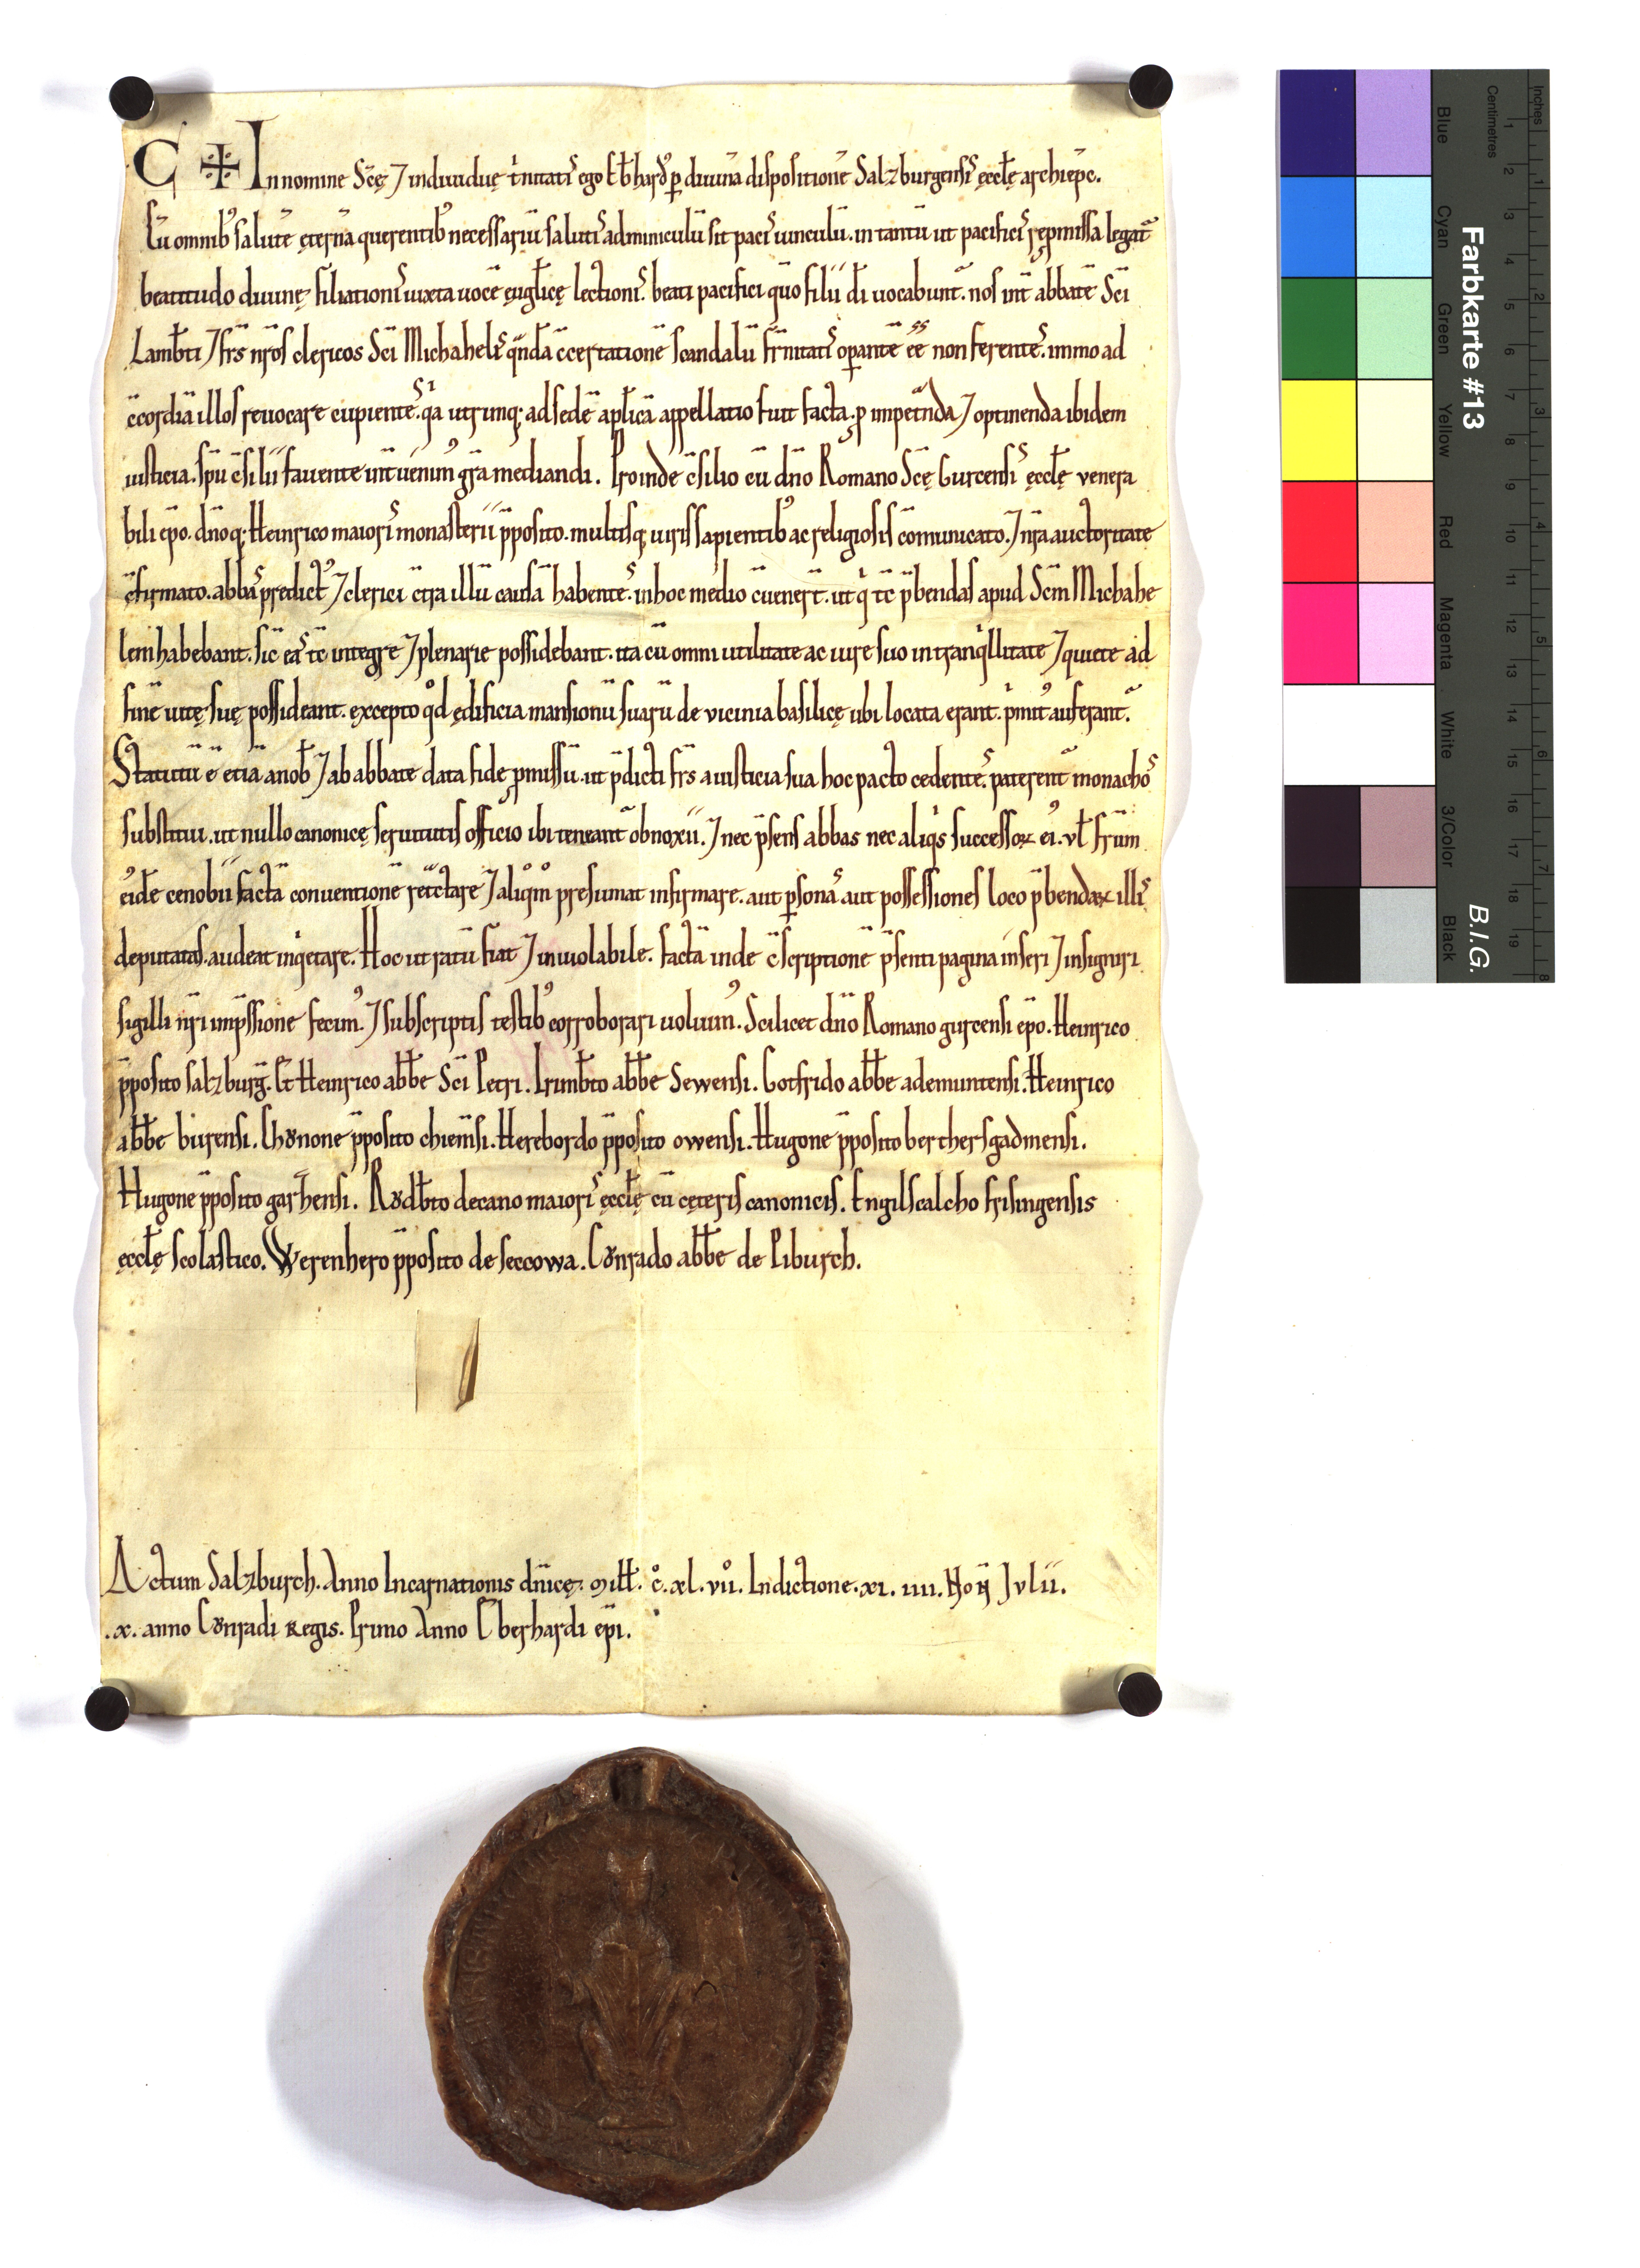 C ✠ In nomine Scę ⁊ indiuiduę t'nitatis ego Eb̄hard' p̱ diuina dispositionē Salzburgensis ęccłę archiep̄c.
Cū omnib' salutē ęternā querentib' necessariū salutis adminiculū sit pacis uinculū. in tantū ut pacificis rep̱missa legat̄
beatitudo diuinę filiationis iuxta uocē euglicę lectionis. beati pacifici quō filii di uocabunt̄. nos int̄ abbatē Sci
Lamb̄ti ⁊ frs nros clericos Sci Michahelis q̄ndā c̄certationē scandalū fr̄nitatis op̱antē ēē non ferentes. immo ad
c̄cordiā illos reuocare cupientes. q'a utrimq; ad sedē aplicā appellatio fuit facta. p̱ impet̄nda ⁊ optinenda ibidem
iusticia. spū c̄silii fauente int̄uenim' gr̄a mediandi. Proinde c̄silio cū dno Romano Scę Gurcensis ęccłę venera
bili epo. dnoq; Heinrico maioris monasterii p̄posito. multisq; uiris sapientib' ac religiosis cōmunicato. ⁊ nr̄a auctoritate
c̄firmato. abbas predict' ⁊ clerici c̄tra illū causā habentes. in hoc medio c̄uener̄t. ut q' tc̄ p̄bendas apud Scm Michahe
lem habebant. sic eas tc̄ integre ⁊ plenarie possidebant. ita cū omni utilitate ac iure suo in tranq'llitate ⁊ quiete ad
finē uitę suę possideant. excepto qd ędificia mansionū suarū de vicinia basilicę ubi locata erant. p'mit' auferant̄.
Statutū ē etiā a nob' ⁊ ab abbate data fide p̱missū. ut p̄dicti frs a iusticia sua hoc pacto cedentes. paterent̄ monachos
substitui. ut nullo canonicę seruitutis officio ibi teneant̄ obnoxii. ⁊ nec p̄sens abbas nec aliq's successoꝝ ei'. vł fr̄um
ei'dē cenobii factā conuentionē ret̄ctare ⁊ aliqm presumat infirmare. aut p̱sonas aut possessiones loco p̄bendaꝝ illis
deputatas. audeat inq'etare. Hoc ut ratū fiat ⁊ inuiolabile. factā inde c̄scriptionē p̄senti pagina inseri ⁊ insigniri
sigilli nr̄i imp̄ssione fecim'. ⁊ subscriptis testib' corroborari uoluim'. Scilicet dno Romano gurcensi epo. Heinrico
p̄posito salzburḡ. Et Heinrico abb̄e Sci Petri. Irimb̄to abb̄e Sewensi. Gotfrido abb̄e ademuntensi. Heinrico
abb̄e burensi. Chŏnone p̄posito chiem̄si. Herebordo p̄posito owensi. Hugone p̄posito berthersgadmensi.
Hugone p̄posito garshensi. Rŏdb̄to decano maioris ęccłę cū cęteris canonicis. Engilscalcho frisingensis
ęccłę scolastico. Werenhero p̄posito de seccowa. Cŏnrado abb̄e de Piburch.
Actum Salzburch. Anno Incarnationis dn̄icę. Mill. c̊. xl. vii̊. Indictione. xi. iiii. Noñ Jvlii.
.x. anno Cŏnradi Regis. Primo Anno Eberhardi epi.
Farbkarte #13
B.I.G.
Inches
Centimetres
Blue
Cyan
Green
Yellow
Red
Magenta
White
3/Color
Black
1 2 3 4 5 6 7 8 9 10 11 12 13 14 15 16 17 18 19
1 2 3 4 5 6 7 8